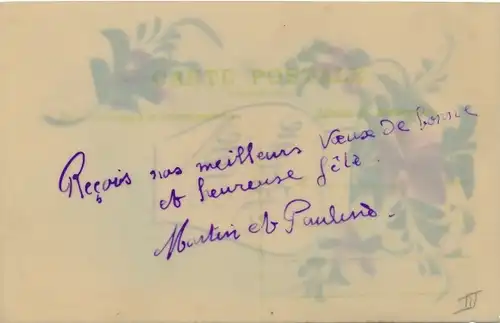 CARTE POSTALE
Reçois nos meilleurs vœux de bonne
et heureuse fête.
Martin et Pauline.
III